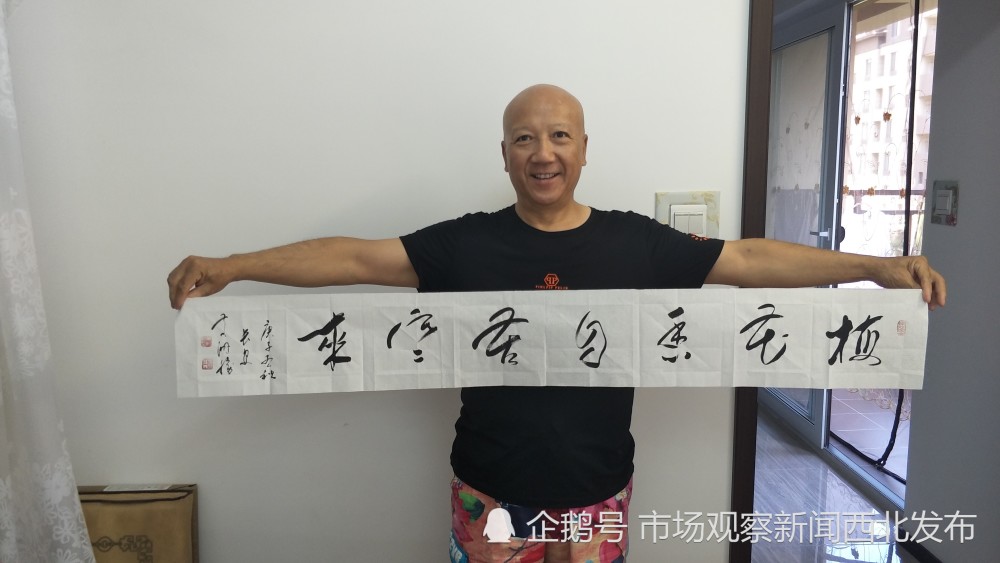 梅花香自苦寒来
庚子秋
长安
企鹅号 市场观察新闻西北发布